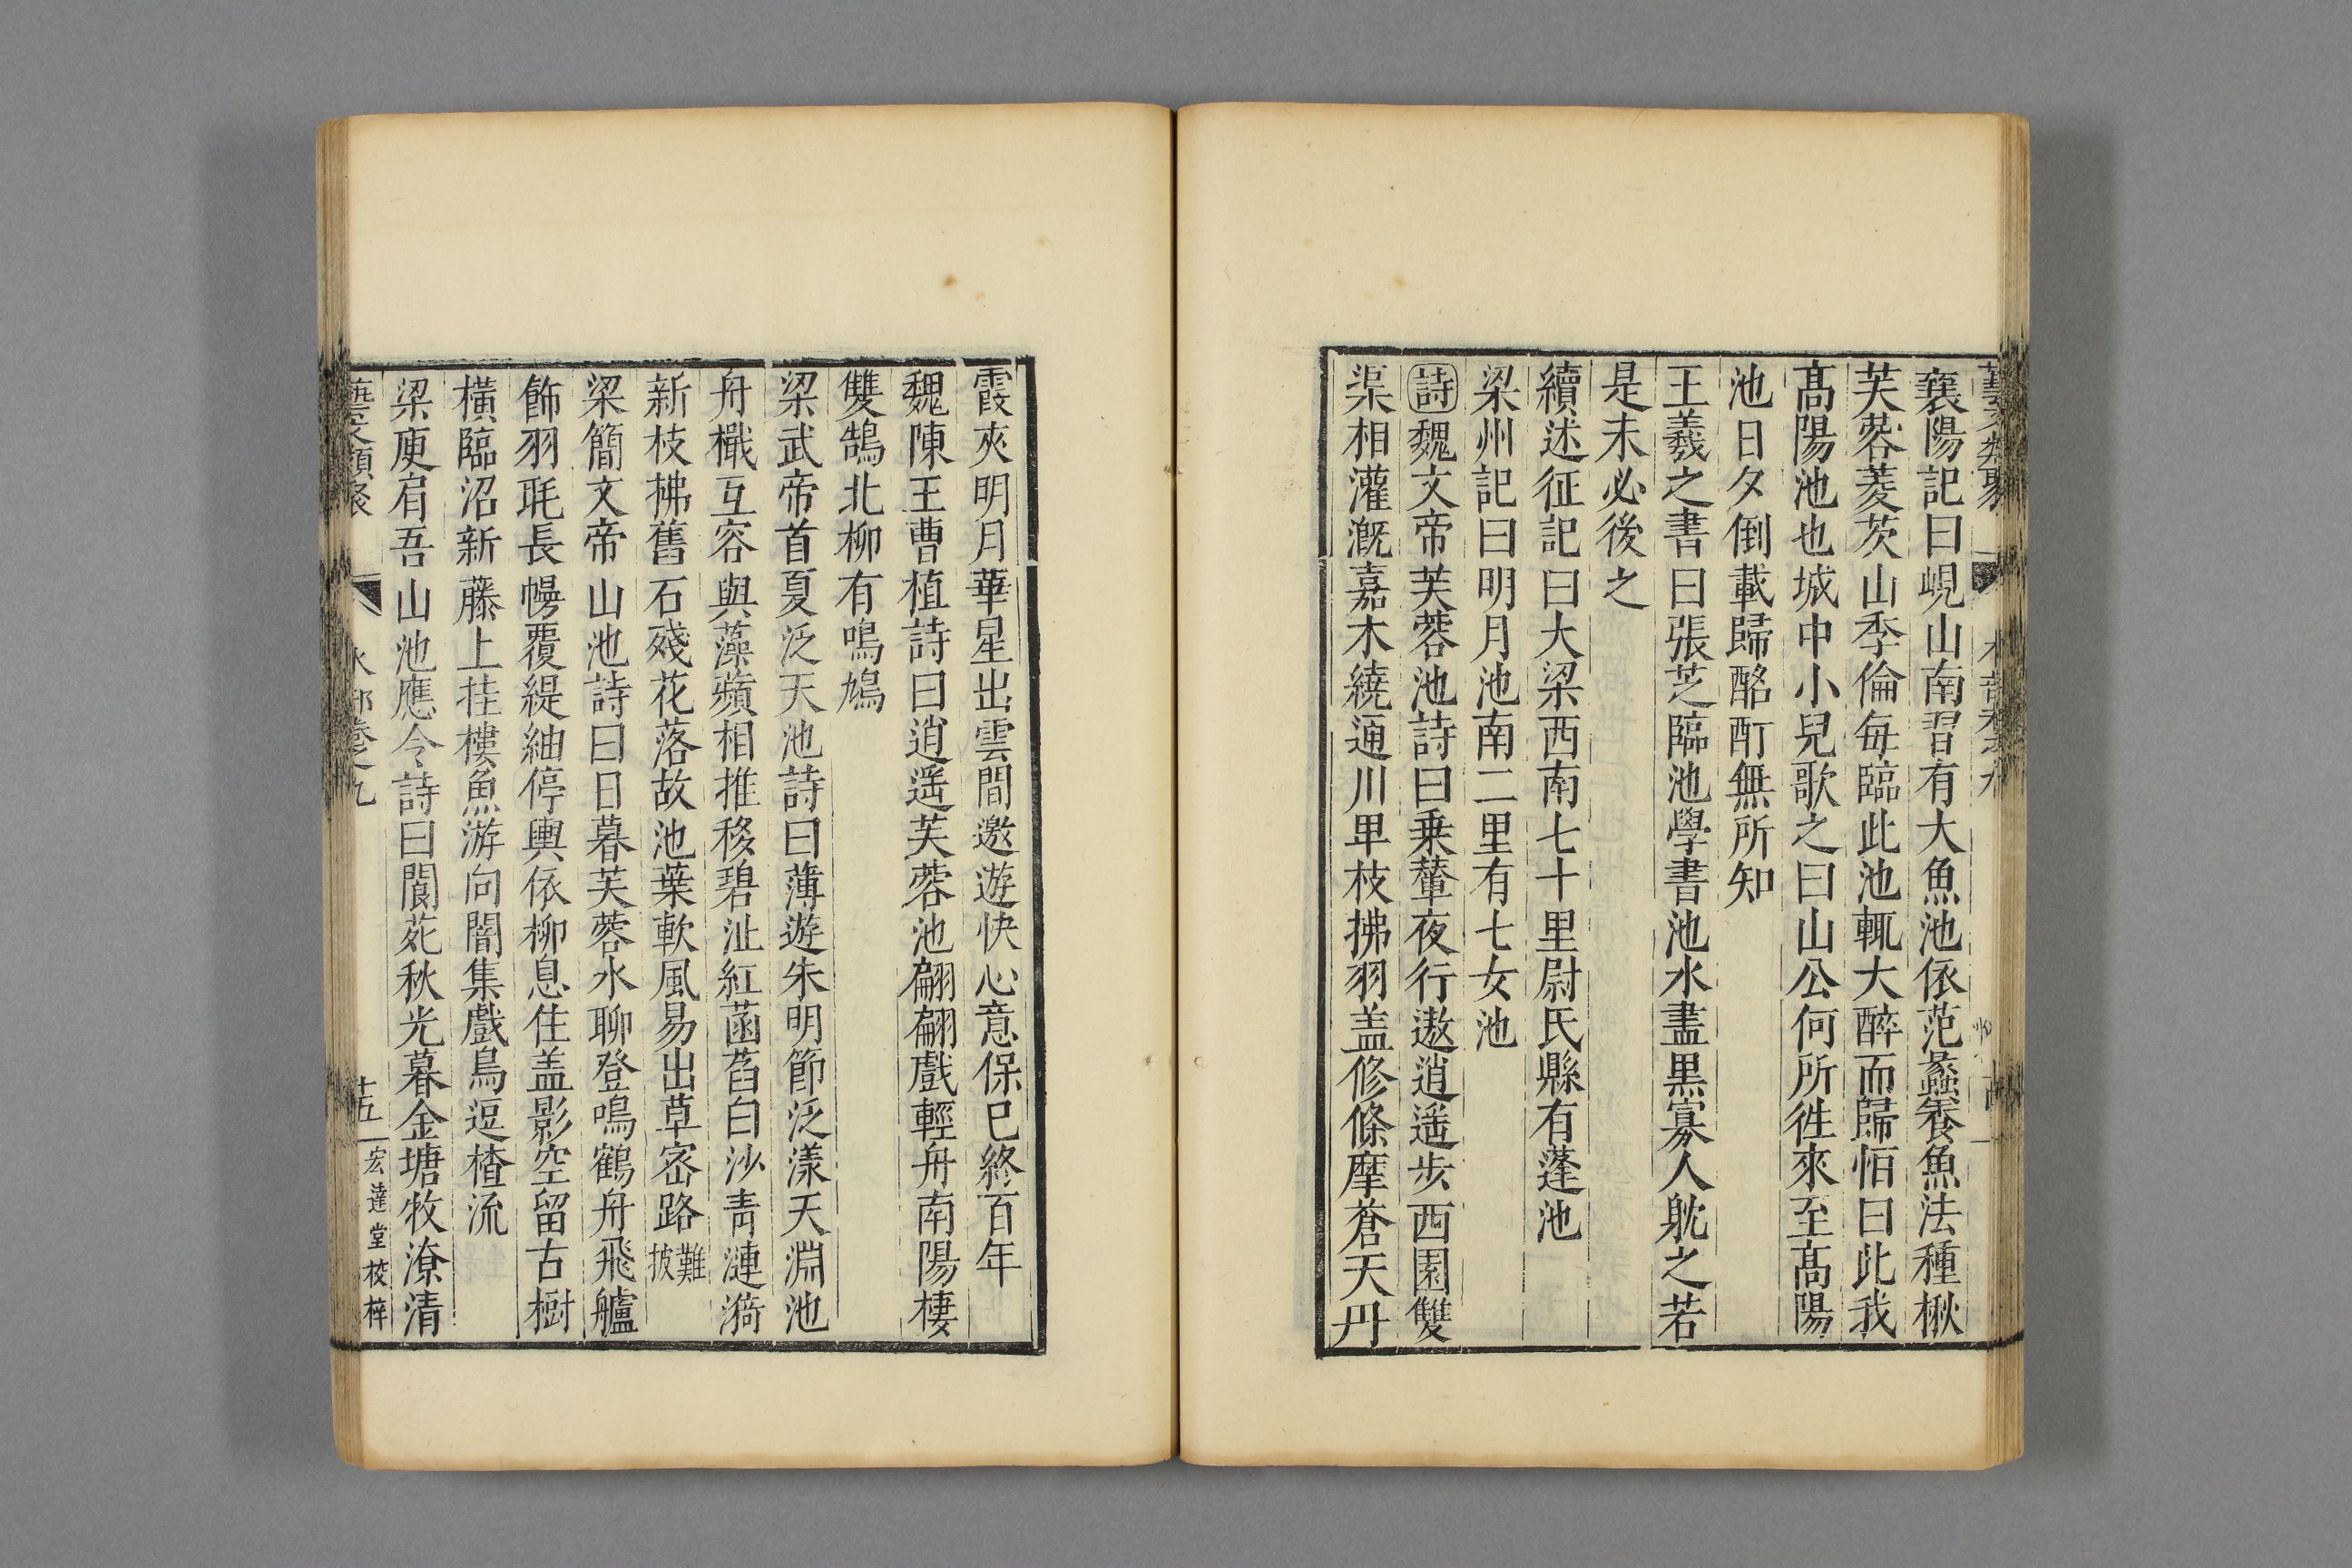 襄陽記曰峴山南習有大魚池依范蠡養魚法種楸
芙蓉菱茨山季倫每臨此池輒大醉而歸恒曰此我
髙陽池也城中小兒歌之曰山公何所徃來至髙陽
池日夕倒載歸酩酊無所知
王羲之書曰張芝臨池學書池水盡黒寡人躭之若
是未必後之
續述征記曰大梁西南七十里尉氏縣有蓬池
梁州記曰明月池南二里有七女池
詩魏文帝芙蓉池詩曰乗輦夜行遨逍遥步西園雙
渠相灌溉嘉木繞通川早枝拂羽盖修條摩蒼天丹
霞夾明月華星出雲間遨遊快心意保已終百年
魏陳王曹植詩曰逍遥芙蓉池翩翩戲輕舟南陽棲
雙鵠北柳有鳴鳩
梁武帝首夏泛天池詩曰薄遊朱明節泛漾天淵池
舟檝互容與藻蘋相推移碧沚紅菡萏白沙青漣漪
新枝拂舊石殘花落故池葉軟風易出草宻路難披
梁簡文帝山池詩曰日暮芙蓉水聊登鳴鶴舟飛艫
飾羽毦長幔覆緹紬停輿依柳息住盖影空留古樹
横臨沼新藤上挂樓魚游向闇集戲鳥逗楂流
梁庾肩吾山池應令詩曰閬苑秋光暮金塘牧潦清
藝文類聚 水部卷之九 十五 宏達堂校梓